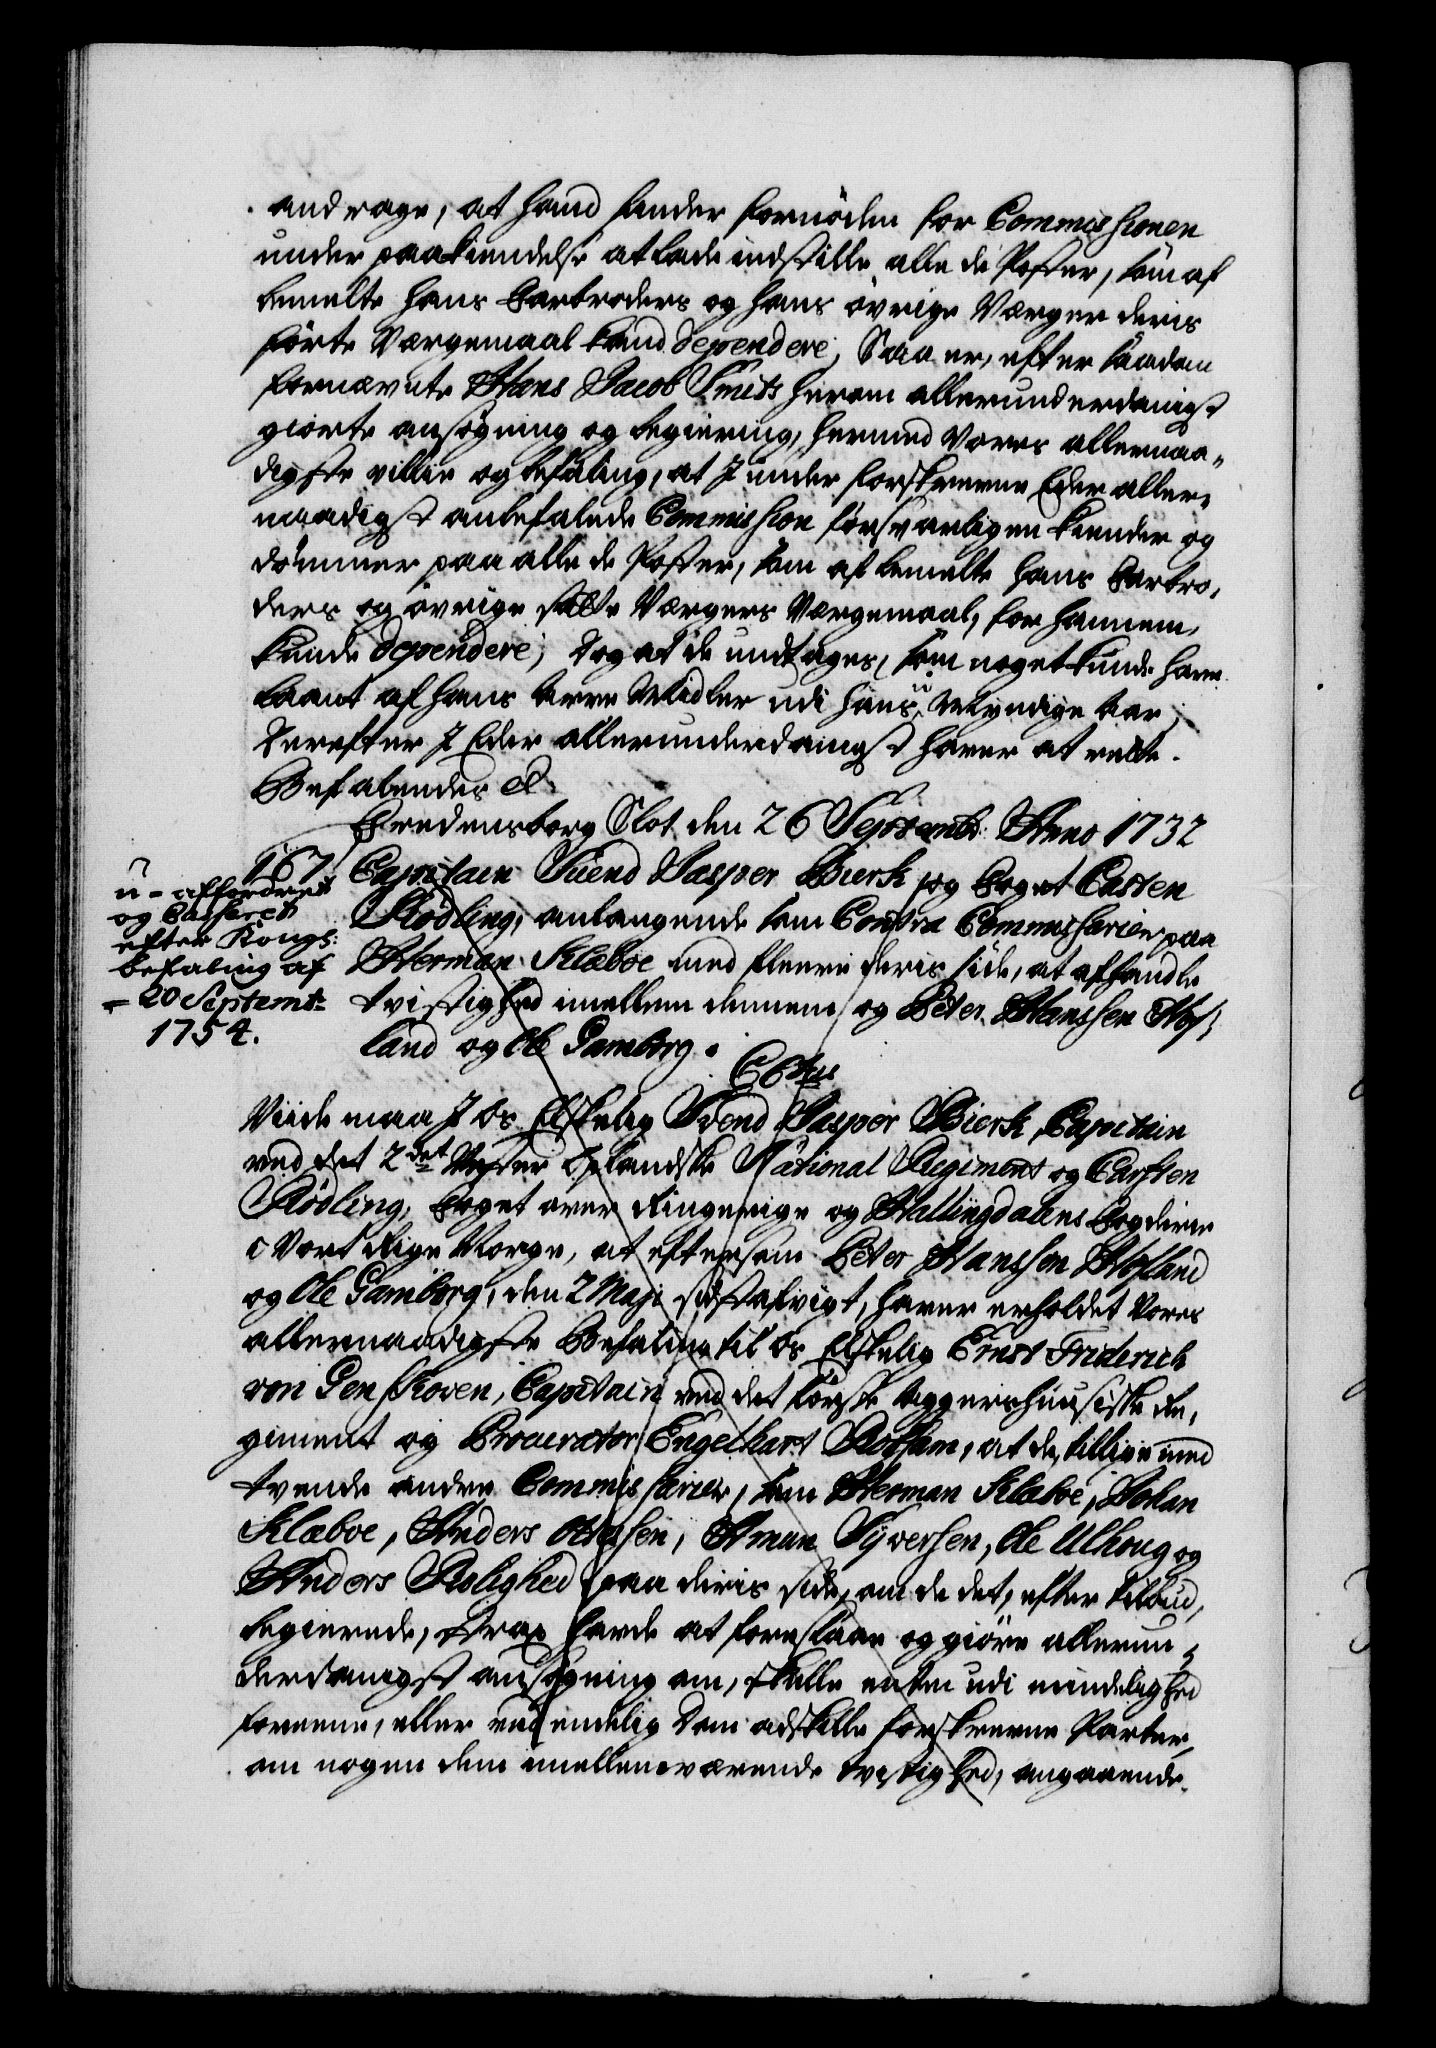 andrage, at hand finder fornöden for Commissionen
under paakiendelse at lade indstille alle de Poster, som af
bemelte hans Farbroders og hans övrige Værger deris
förte Værgemaal kand dependere; Saa er, efter saadan
fornævnte Hans Jacob Smits herom allerunderdanigst
giorte ansögning og begiering, hermed Vores allernaa-
digste villie og befaling, at J under forskrevne Eder aller-
naadigst anbefalede Commission forsvarligen kiender og
dömmer paa alle de Poster, som af bemelte hans Farbro-
ders og övrige Værgers Værgemaal, for hannem
kunde dependere; dog at de undtages, som noget kunde have
laant af hans Midler udi hans Myndige Aar;
Derefter J Eder allerunderdanigst haver at rette.
Befalendes &
Fredensborg Slot den 26 Septembr: Anno 1732
167 Capitain Svend Jasper Bierk og Foget Casten
Rödling, anlangende som Contra Commissarier paa
Herman Klæboe med fleere deris side, at afhandle
tvistighed imellem dennem og Peter Hanssen Hof-
land og Ole Gamborg.
u-affordret
og Casseret
efter Kongs:
befaling af
20 Septemb:
1754.
C 6tus
Viide maa J Os Elskelig Svend Jasper Bierk, Capitain
ved det 2det Vester Oplandske National Regiment og Carsten
Rödling, Foget over Ringerige og Hallingdalens Fogderie
i Vort Rige Norge, at eftersom Peter Hanssen Hofland
og Ole Gamborg, den 2 Maji sidstafvigt, haver erholdet Vores
allernaadigste Befaling til Os Elskelig Ernst Friderich
von Genskoven, Capitain ved det förste Aggershuusiske Re-
giment og Procurator Engelhart Rotham, at de, tillige med
tvende andre Commissarier, som Herman Klæboe, Johan
Klæboe, Anders Olssen, Aman Syversen, Ole Ulhoug og
Anders Rolighed paa deris side, om de det, efter tilbud,
begierede, strax havde at foreslaae og giöre allerun-
derdanigst ansögning om, skulle enten udi mindelighed
foreene, eller ved endelig Dom adskille forskrevne Parter,
om nogen dem imellemværende tvistighed, angaaende